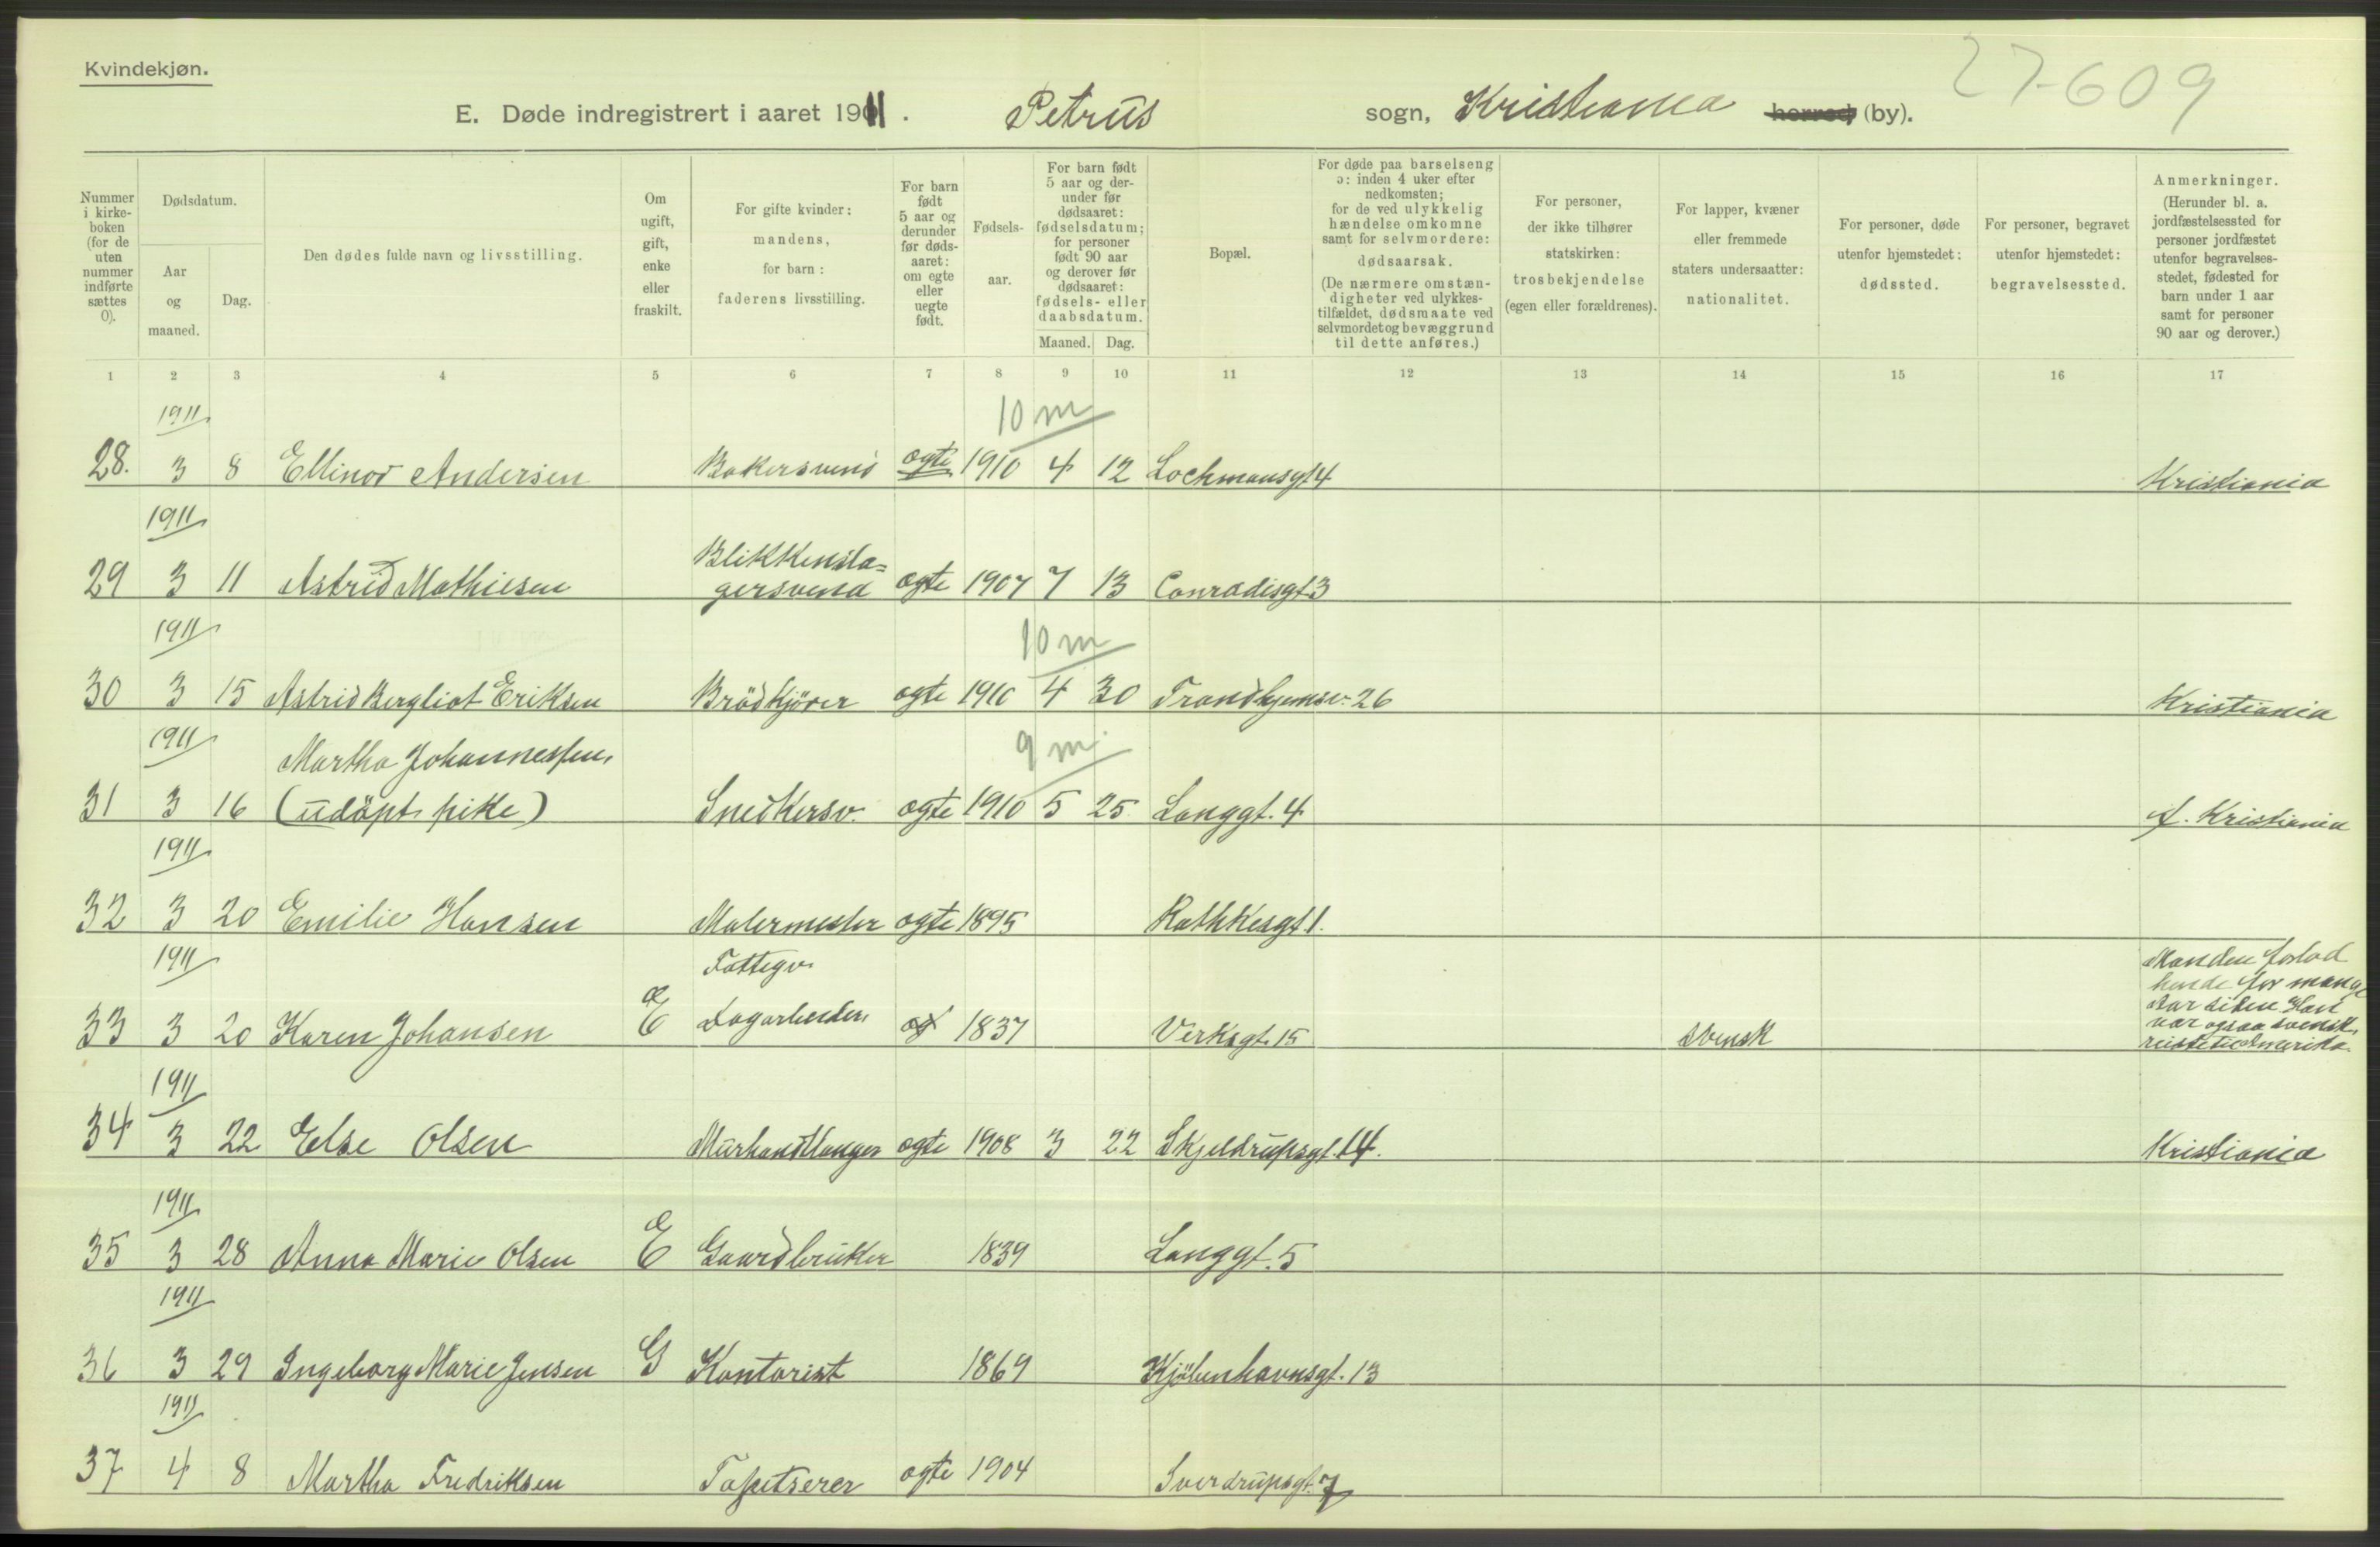 Kvindekjøn.
27-609
E. Døde indregistrert i aaret 1911. Petrus sogn, Kristiania herred (by).
Nummer i kirkeboken (for de uten nummer indførte sættes 0).
Dødsdatum.
Aar og maaned.
Dag.
Den dødes fulde navn og livsstilling.
Om ugift, gift, enke eller fraskilt.
For gifte kvinder: mandens, for barn: faderens livsstilling.
For barn født 5 aar og derunder før dødsaaret: om egte eller uegte født.
Fødselsaar.
For barn født 5 aar og derunder før dødsaaret: fødselsdatum; for personer født 90 aar og derover før dødsaaret: fødsels- eller daabsdatum.
Maaned. Dag.
Bopæl.
For døde paa barselseng ɔ: inden 4 uker efter nedkomsten; for de ved ulykkelig hændelse omkomne samt for selvmordere: dødsaarsak. (De nærmere omstændigheter ved ulykkestilfældet, dødsmaate ved selvmordet og bevæggrund til dette anføres.)
For personer, der ikke tilhører statskirken: trosbekjendelse (egen eller forældrenes).
For lapper, kvæner eller fremmede staters undersaatter: nationalitet.
For personer, døde utenfor hjemstedet: dødssted.
For personer, begravet utenfor hjemstedet: begravelsessted.
Anmerkninger. (Herunder bl. a. jordfæstelsessted for personer jordfæstet utenfor begravelsesstedet, fødested for barn under 1 aar samt for personer 90 aar og derover.)
1 2 3 4 5 6 7 8 9 10 11 12 13 14 15 16 17
1911 10 m
28. 3 8 Ellinor Andersen Bakersvend ogte 1910 4 12 Lochmansgt 4 Kristiania
1911 Blikkensla=
29 3 11 Astrid Mathiesen gersvend ogte 1907 7 13 Conradisgt 3
1911 10 m
30 3 15 Astrid Bergliot Eriksen Brödkjörer ogte 1910 4 30 Trondhjemsv. 26 Kristiania
1911 Martha Johannessen, 9 m.
31 3 16 (udöpt pike) Snedkersv. ogte 1910 5 25 Langgt. 4 A. Kristiania
1911
32 3 20 Emilie Hansen Malermester ogte 1895 Rathkesgt 1.
1911 Fattegv. Manden forlod
hende for mange
33 3 20 Karen Johansen E Dagarbeider, 1837 Verksgt. 15 svensk aar siden Han
var ogsaa svensk,
reiste til Amerika.
1911
34 3 22 Else Olsen Murhandlanger ogte 1908 3 22 Skjeldrupsgt. 14. Kristiania
1911
35 3 28 Anna Marie Olsen E Gaardbruker 1839 Langgt. 5
1911
36 3 29 Ingeborg Marie Jensen G Kontorist 1869 Kjöbenhavnsgt. 13
1911
37 4 8 Martha Fredriksen Tapetserer ogte 1904 Sverdrupsgt. 7